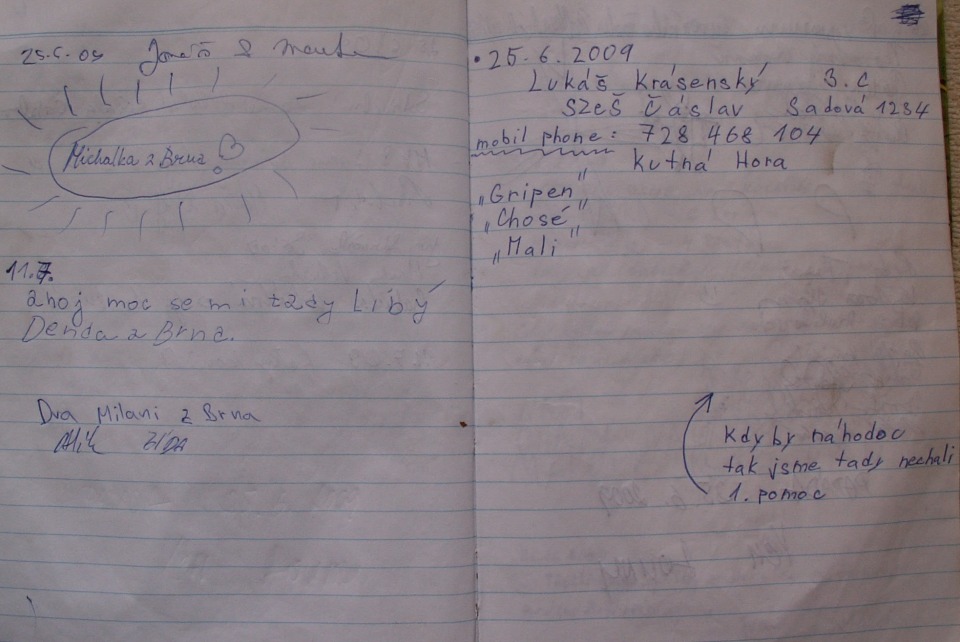 25.6.09
Michalka z Brna
11.7.
ahoj moc se mi tady Líbý
Denda z Brna.
Dva Milani z Brna
• 25.6.2009
Lukáš Krásenský 3.C
SZeŠ Čáslav Sadová 1234
mobil phone: 728 468 104
Kutná Hora
„Gripen"
„Chosé"
„Mali"
Kdyby náhodoc
tak jsme tady nechali
1. pomoc